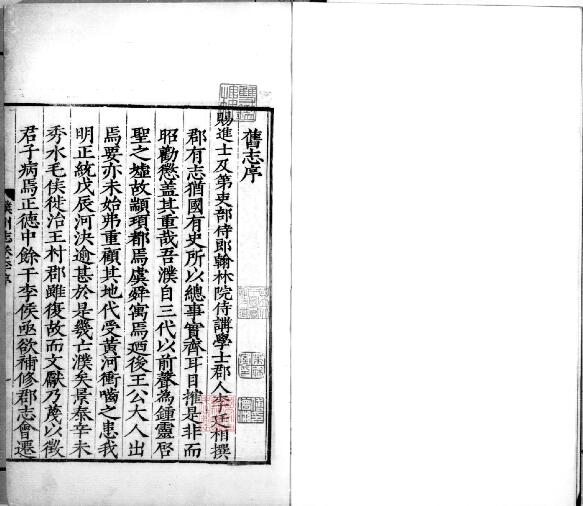 舊志序
賜進士及第吏部侍郎翰林院侍講學士郡人李廷相撰
郡有志猶國有史所以總事實齊耳目搉是非而
昭勸懲蓋其重哉吾濮自三代以前聲為鍾靈啓
聖之墟故顓頊都焉虞舜寓焉廼後王公大人出
焉要亦未始弗重顧其地代受黄河衝嚙之患我
明正統戊辰河決逾甚於是幾亡濮矣景泰辛未
秀水毛侯徙治王村郡雖復故而文獻乃蔑以徵
君子病焉正德中餘干李侯亟欲補修郡志會遷
濮州志